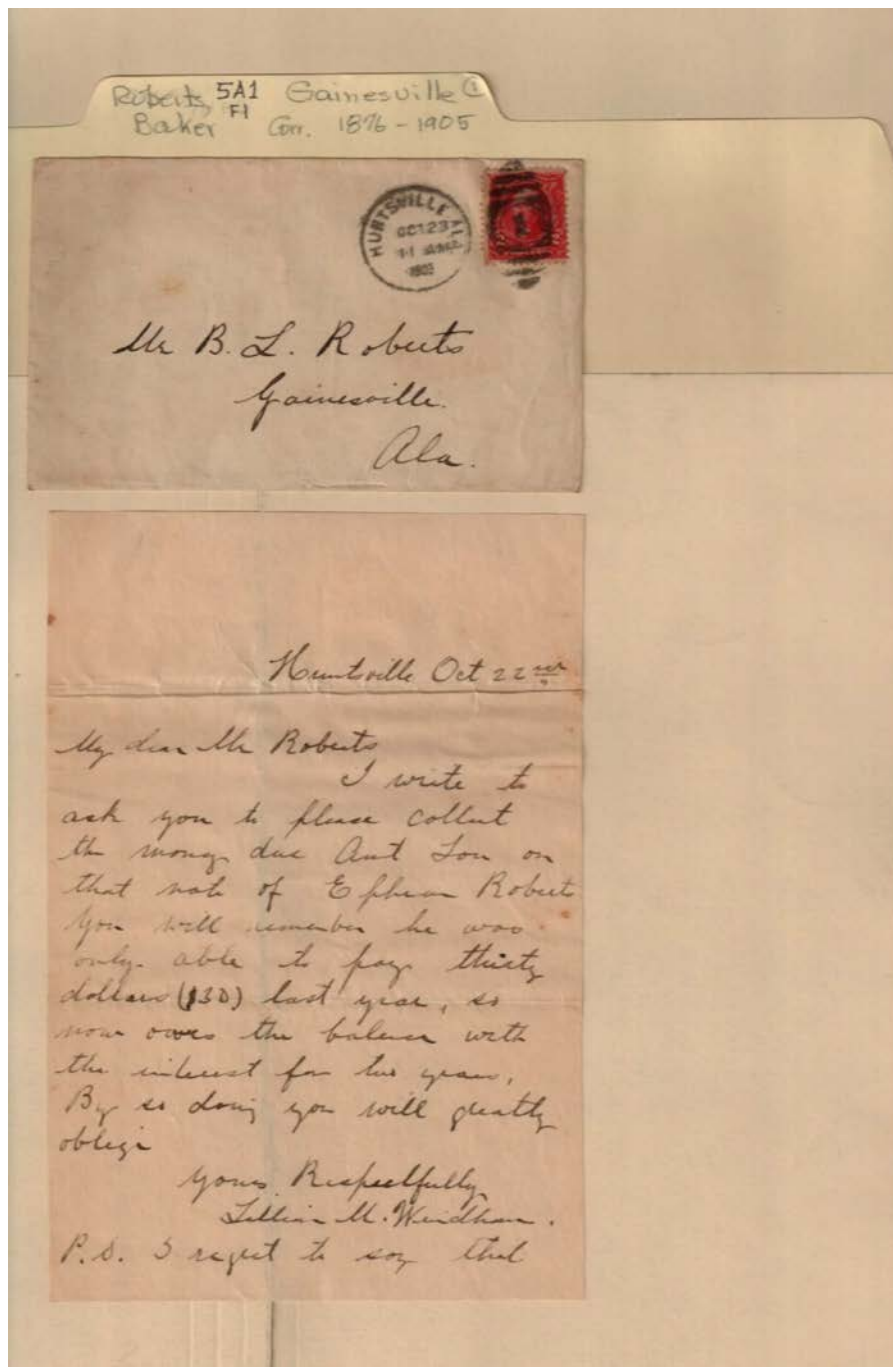 Roberts, 5A1 Gainesville ①
Baker F1 Corr. 1876-1905
HUNTSVILLE ALA.
OCT 23
1903
Mr B. L. Roberts
Gainesville.
Ala.
Huntsville Oct 22nd
My dear Mr Roberts
I write to
ask you to please collect
the money due Aunt Lou on
that note of Ephram Roberts
You will remember he was
only able to pay thirty
dollars ($30) last year, so
now owes the balance with
the interest for two years.
By so doing you will greatly
oblige
Yours Respectfully
Lillian M. Windham.
P.S. I regret to say that